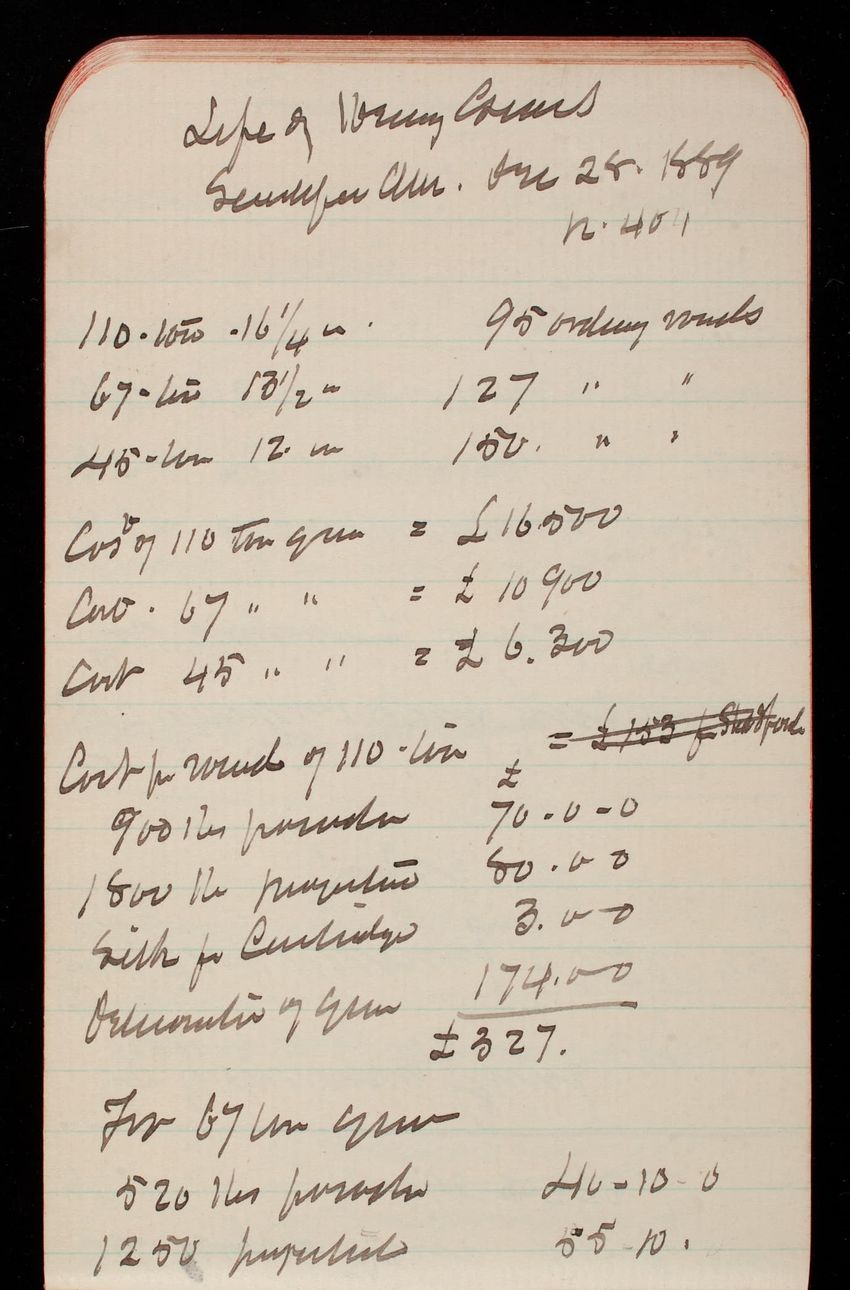 Life of Heavy Cannons
Scientific Am. Dec 28. 1889
p. 401
110-ton - 16 1/4 in. 95 ordinary rounds
67-ton 13 1/2 in 127 " "
45-ton 12. in 150. " "
Cost of 110 ton gun = £16500
Cost . 67 " " = £ 10900
Cost 45 " " = £ 6.300
Cost per round of 110-ton = £153 for
£
900 lbs powder 70-0-0
1800 lb projectile 80.00
Silk for Cartridge 3.00
Deterioration of gun 174.00
£327.
For 67 ton gun
520 lbs powder 40-10-0
1250 projectile 55-10.